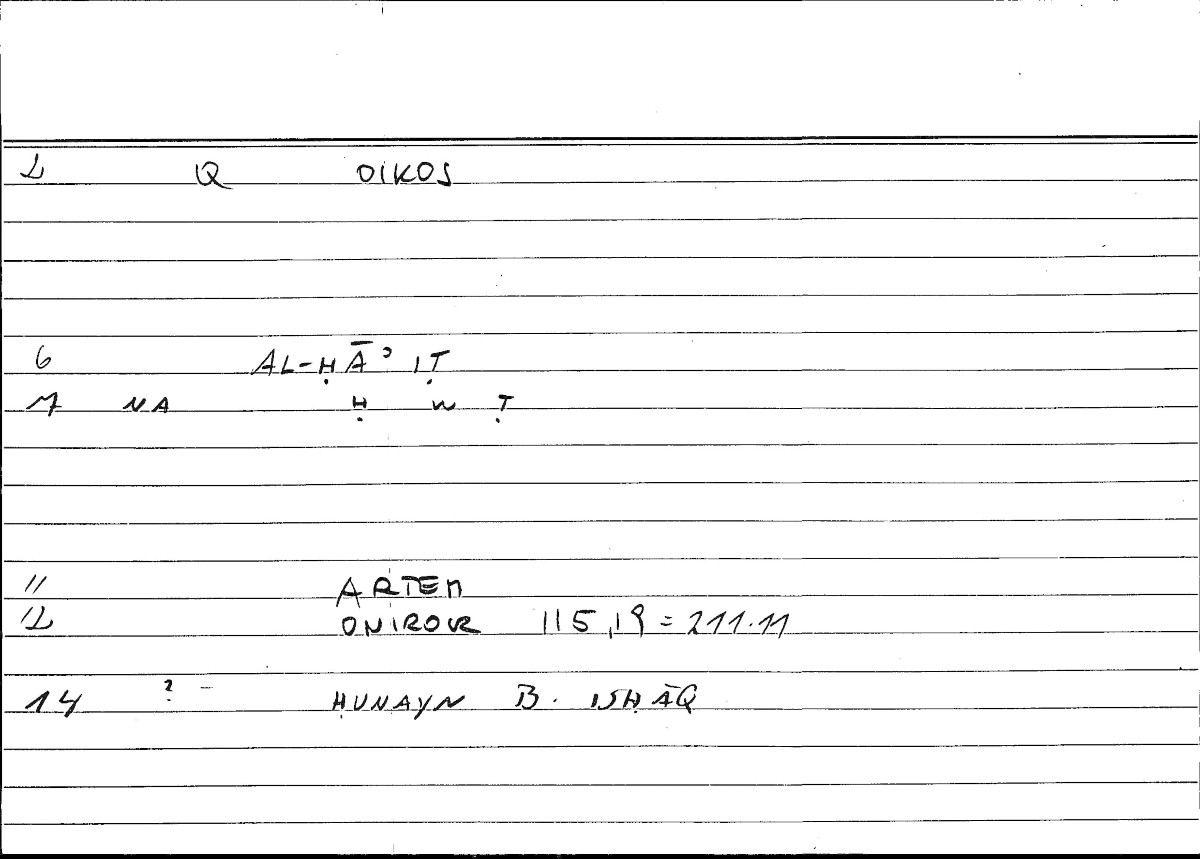 2 Q OIKOS
6 AL-ḤĀʾIṬ
7 NA Ḥ W Ṭ
11 ARTEM
12 ONIROCR 115,19 = 211.11
14 ? – ḤUNAYN B. ISḤĀQ